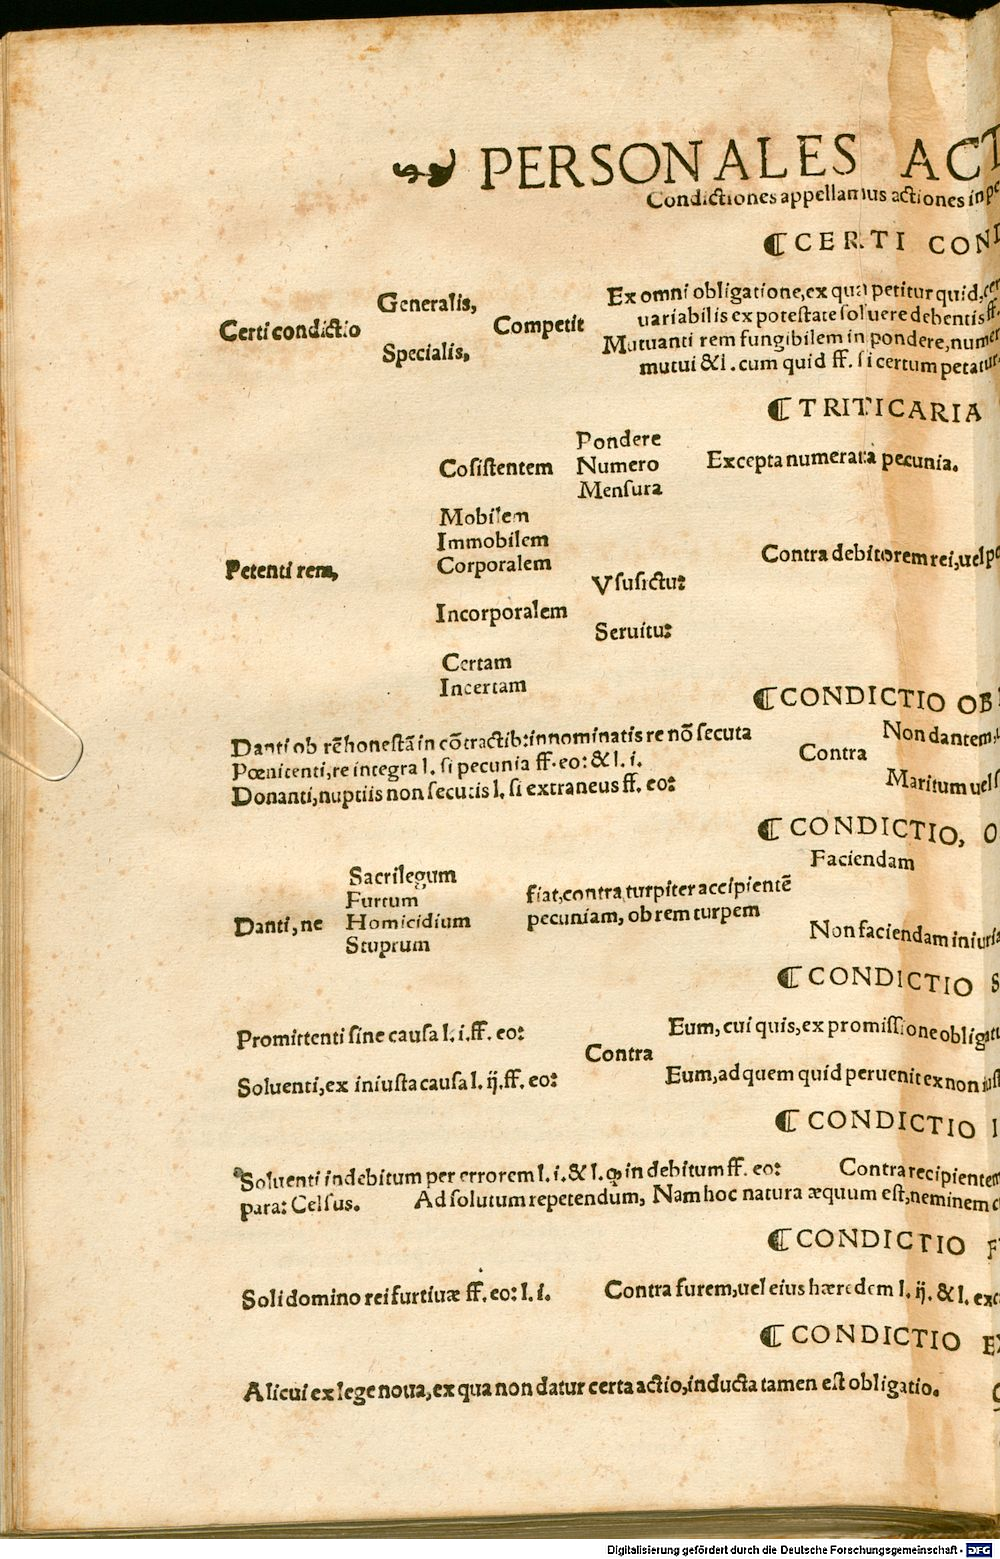 PERSONALES ACT
Condictiones appellamus actiones in pe
¶ CERTI COND
Certi condictio
Generalis,
Specialis,
Competit
Ex omni obligatione, ex qua petitur quid, cer
uariabilis ex potestate soluere debentis ff.
Mutuanti rem fungibilem in pondere, numer
mutui & l. cum quid ff. si certum petatur
¶ TRITICARIA
Petenti rem,
Cōsistentem
Pondere
Numero
Mensura
Excepta numerata pecunia.
Mobilem
Immobilem
Corporalem
Contra debitorem rei, uel po
Vsusfctu:
Incorporalem
Seruitu:
Certam
Incertam
¶ CONDICTIO OB
Danti ob rē honestā in cōtractib: innominatis re nō secuta
Pœnitenti, re integra l. si pecunia ff. eo: & l. i.
Donanti, nuptiis non secutis l. si extraneus ff. eo:
Contra
Non dantem,
Maritum uel
¶ CONDICTIO, O
Danti, ne
Sacrilegum
Furtum
Homicidium
Stuprum
fiat, contra turpiter accipientē
pecuniam, ob rem turpem
Faciendam
Non faciendam iniuria
¶ CONDICTIO S
Promittenti sine causa l. i. ff. eo:
Soluenti, ex iniusta causa l. ij. ff. eo:
Contra
Eum, cui quis, ex promissione obligatu
Eum, ad quem quid peruenit ex non iust
¶ CONDICTIO I
Soluenti indebitum per errorem l. i. & l. ꝙ indebitum ff. eo: Contra recipientem
para: Celsus. Ad solutum repetendum, Nam hoc natura æquum est, neminem c
¶ CONDICTIO F
Soli domino rei furtiuæ ff. eo: l. i. Contra furem, uel eius hæredem l. ij. & l. exc
¶ CONDICTIO EX
Alicui ex lege noua, ex qua non datur certa actio, inducta tamen est obligatio.
Digitalisierung gefördert durch die Deutsche Forschungsgemeinschaft - DFG